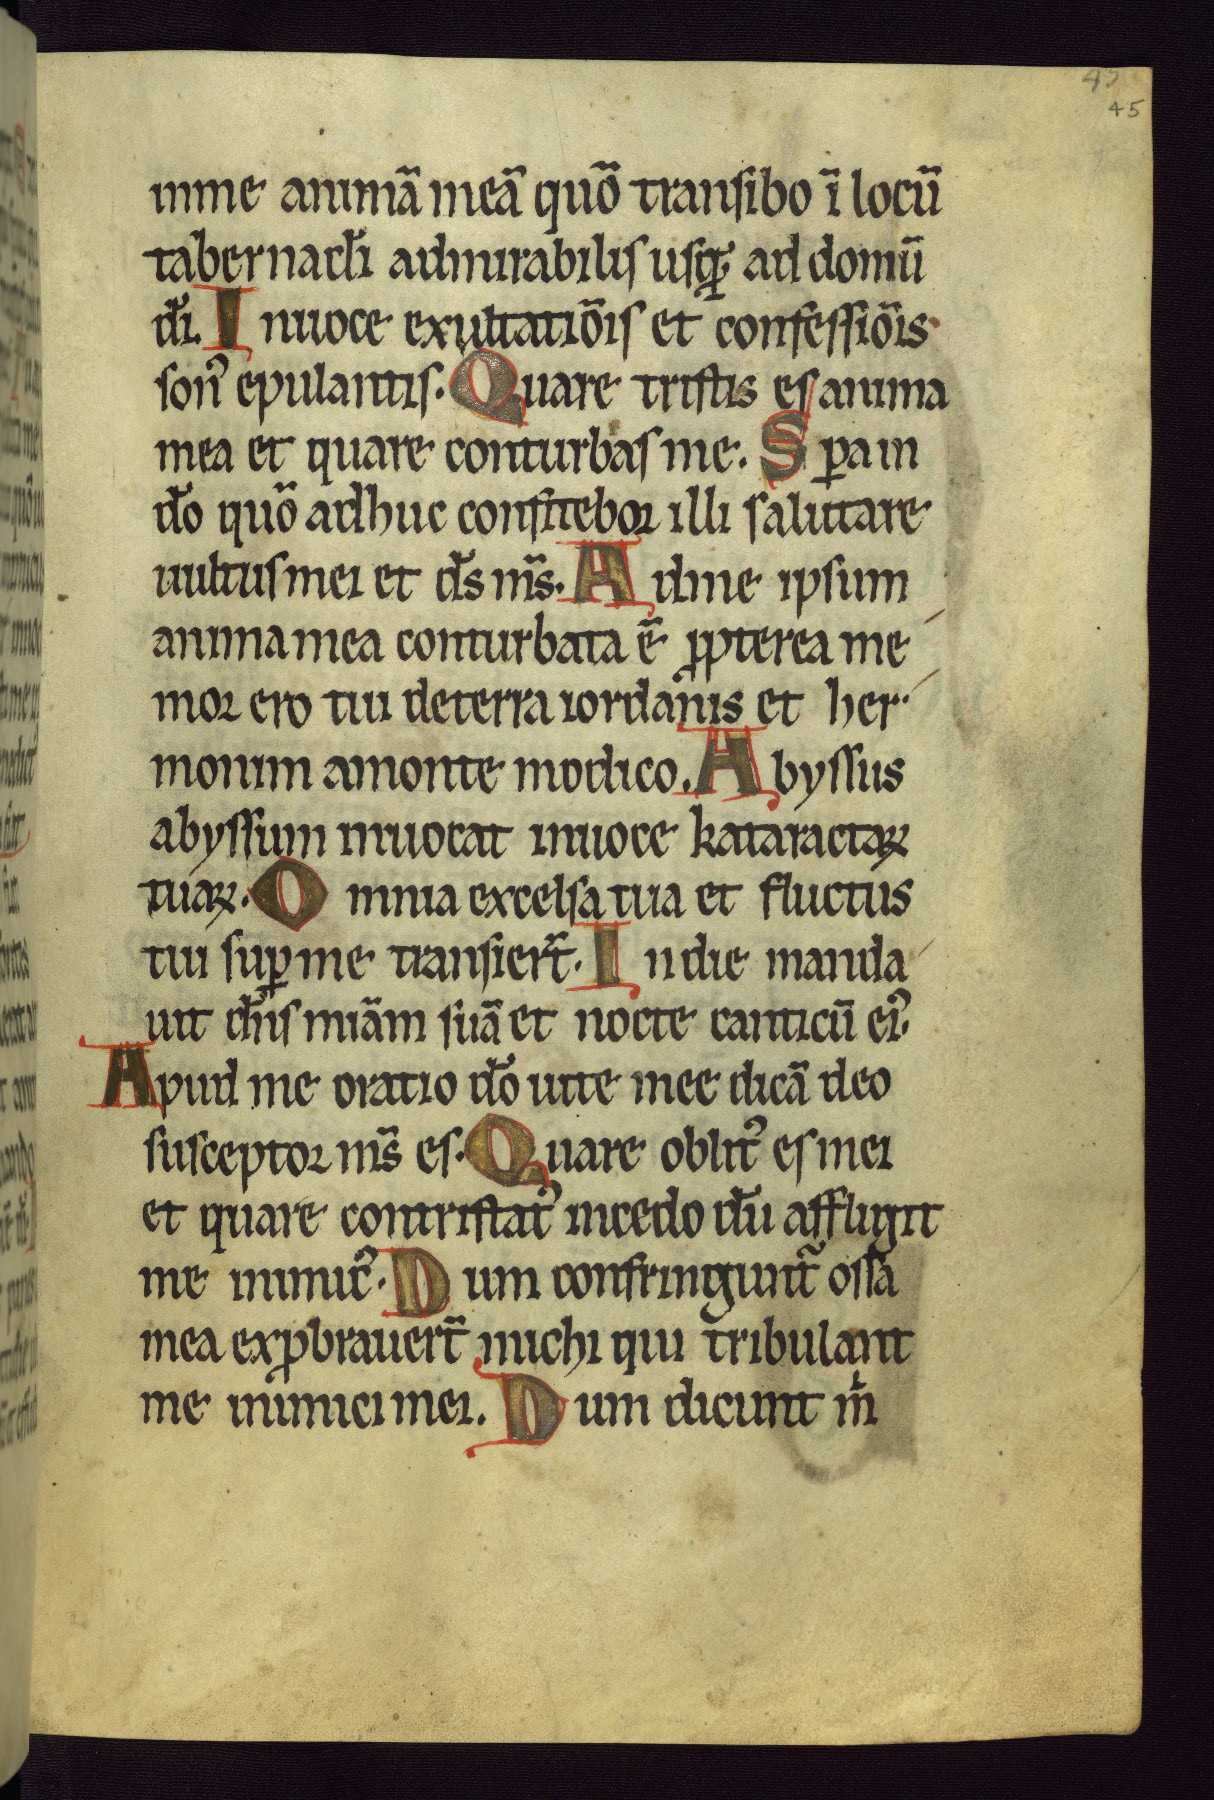 45
45
inme animā meā quō transibo ī locū
tabernacl̄i admirabilis usq; ad domū
dī. In uoce exultatiōis et confessiōis
son᷒ epulantis. Quare tristis es anima
mea et quare conturbas me. Spa in
dō quō adhuc confitebor illi salutare
uultus mei et ds̄ ms̄. Ad me ipsum
anima mea conturbata ē ꝓpterea me
mor ero tui de terra iordanis et her
monum amonte modico. Abyssus
abyssum inuocat inuoce kataractaꝝ
tuaꝝ. Omnia excelsa tua et fluctus
tui suꝑ me transiert̄. In die manda
uit dn̄s miām suā et nocte canticū ei᷒.
Apud me oratio dō uite mee dicā deo
susceptor ms̄ es. Quare oblit᷒ es mei
et quare contristat᷒ incedo dū affligit
me inimic᷒. Dum confringunt̄ ossa
mea exꝓbrauert̄ michi qui tribulant
me inimici mei. Dum dicunt m̄